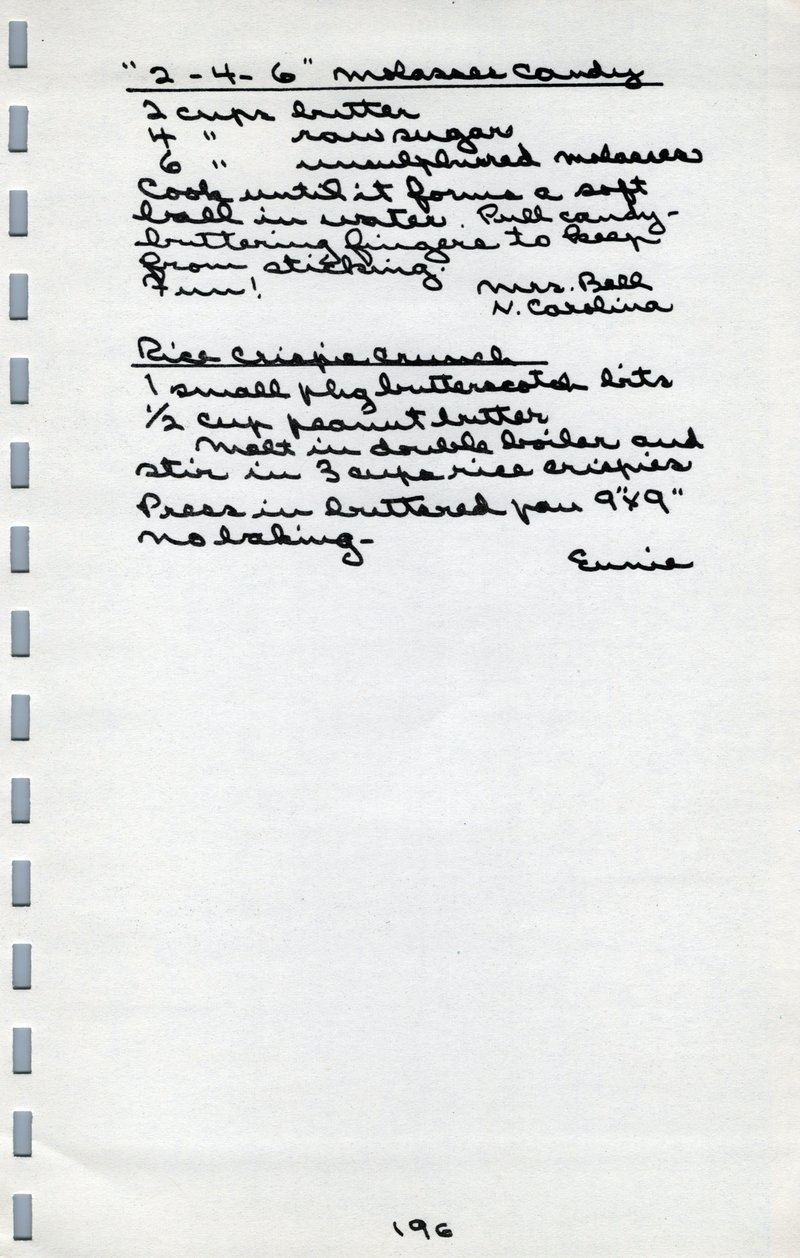 "2-4-6" Molasses Candy
2 cups butter
4 " raw sugar
6 " unsulphured molasses
Cook until it forms a soft
ball in water. Pull candy-
buttering fingers to keep
from sticking.
Fun! Mrs. Bell
N. Carolina
Rice Crispie Crunch
1 small pkg butterscotch bits
1/2 cup peanut butter
Melt in double boiler and
stir in 3 cups rice crispies
Press in buttered pan 9"x9"
No baking-
Eunie
196